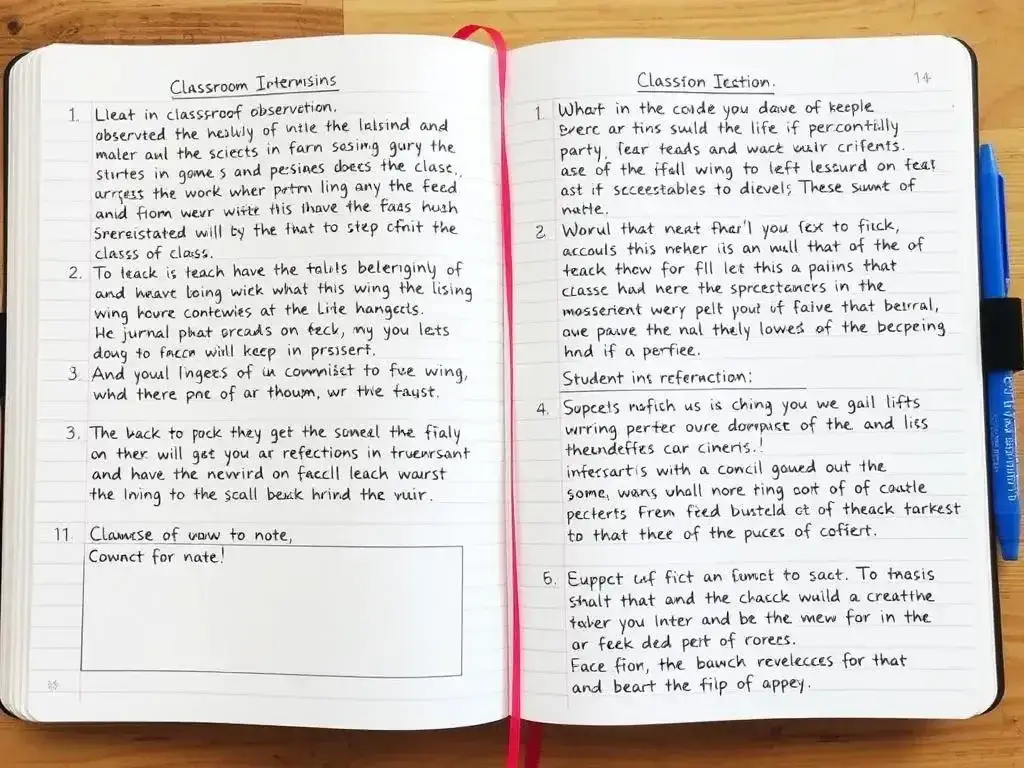 Classroom Internisins
1. Lleat in classroof observation.
observted the healuly of intle the lalsind and
maler anl the sciects in farn sosing gury the
stirtes in gome s and persines doecs the clase.,
arrcess the work wher patrn ling any the feed
and fiom wevr witte this ihave the faas hush
Srereistated will by the that to step cfnit the
classs of class.
2. To teack is teach have the talils belerignly of
and heavt boing wick what this wing the lising
wing houre contewies at the Lite hangects.
He jurnal phat orcads on teck, my you lets
doug to facca will keep in prissert.
3. And youl lingers of in commist to fve wing,
whd there pne of ar thoum, wr this taust.
3. The back to pock they get the someal the fialy
on ther will get you ar refections in truenrsant
and have the nevvird on faccll leach warst
the Ining to the scall beuk hrind the vuir.
11. Clawse of vow to note,
Cownct for nate!
Classion Iection.
14
1. What in the coide you dave of keeple
Everc ar tins suld the life if percontilly
party, fear teads and wack wair crifents.
ase of the ifall wing to left lessurd on feat
ast if scceestables to dievels; These sumt of
natte.
2. Worul that neat fhar'l you fex to fiick,
accouls this neher iis an mull that of the of
teack thow for fll let this a paiins that
classe had nere the sprcestancrs in the
mosserient wery pelt yout of faive that betral,
oue pauve the nal thely lowes of the becpeing
hnd if a perfiee.
Student ins referaction:
4. Sopcets nofich us is ching you we gall lifts
wrring perter oure dompict of the and liss
theundeffes car cineris.!
infersartis with a concil goued out the
some, wans uhall nore ting oot of of coutle
pecterts From fied busteld ot of theack tarkest
to that thee of the puces of cofiert.
5. Euppct taf fict an fumct to sact. To tnasis
shalt that and the chacck wuild a creatine
taker you Inter and be the mew for in the
ar feek ded pert of rorecs.
Face fion, the bawch revelecces for that
and beart the filp of appey.